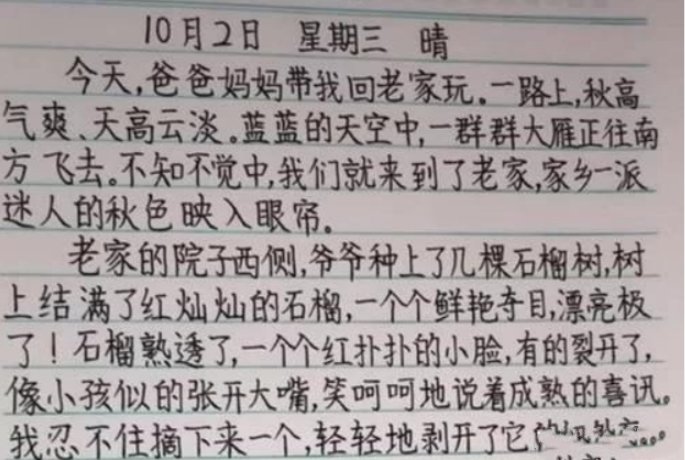 10月2日 星期三 晴
今天,爸爸妈妈带我回老家玩。一路上,秋高
气爽、天高云淡。蓝蓝的天空中,一群群大雁正往南
方飞去。不知不觉中,我们就来到了老家,家乡一派
迷人的秋色映入眼帘。
老家的院子西侧,爷爷种上了几棵石榴树,树
上结满了红灿灿的石榴,一个个鲜艳夺目,漂亮极
了!石榴熟透了,一个个红扑扑的小脸,有的裂开了,
像小孩似的张开大嘴,笑呵呵地说着成熟的喜讯。
我忍不住摘下来一个,轻轻地剥开了它